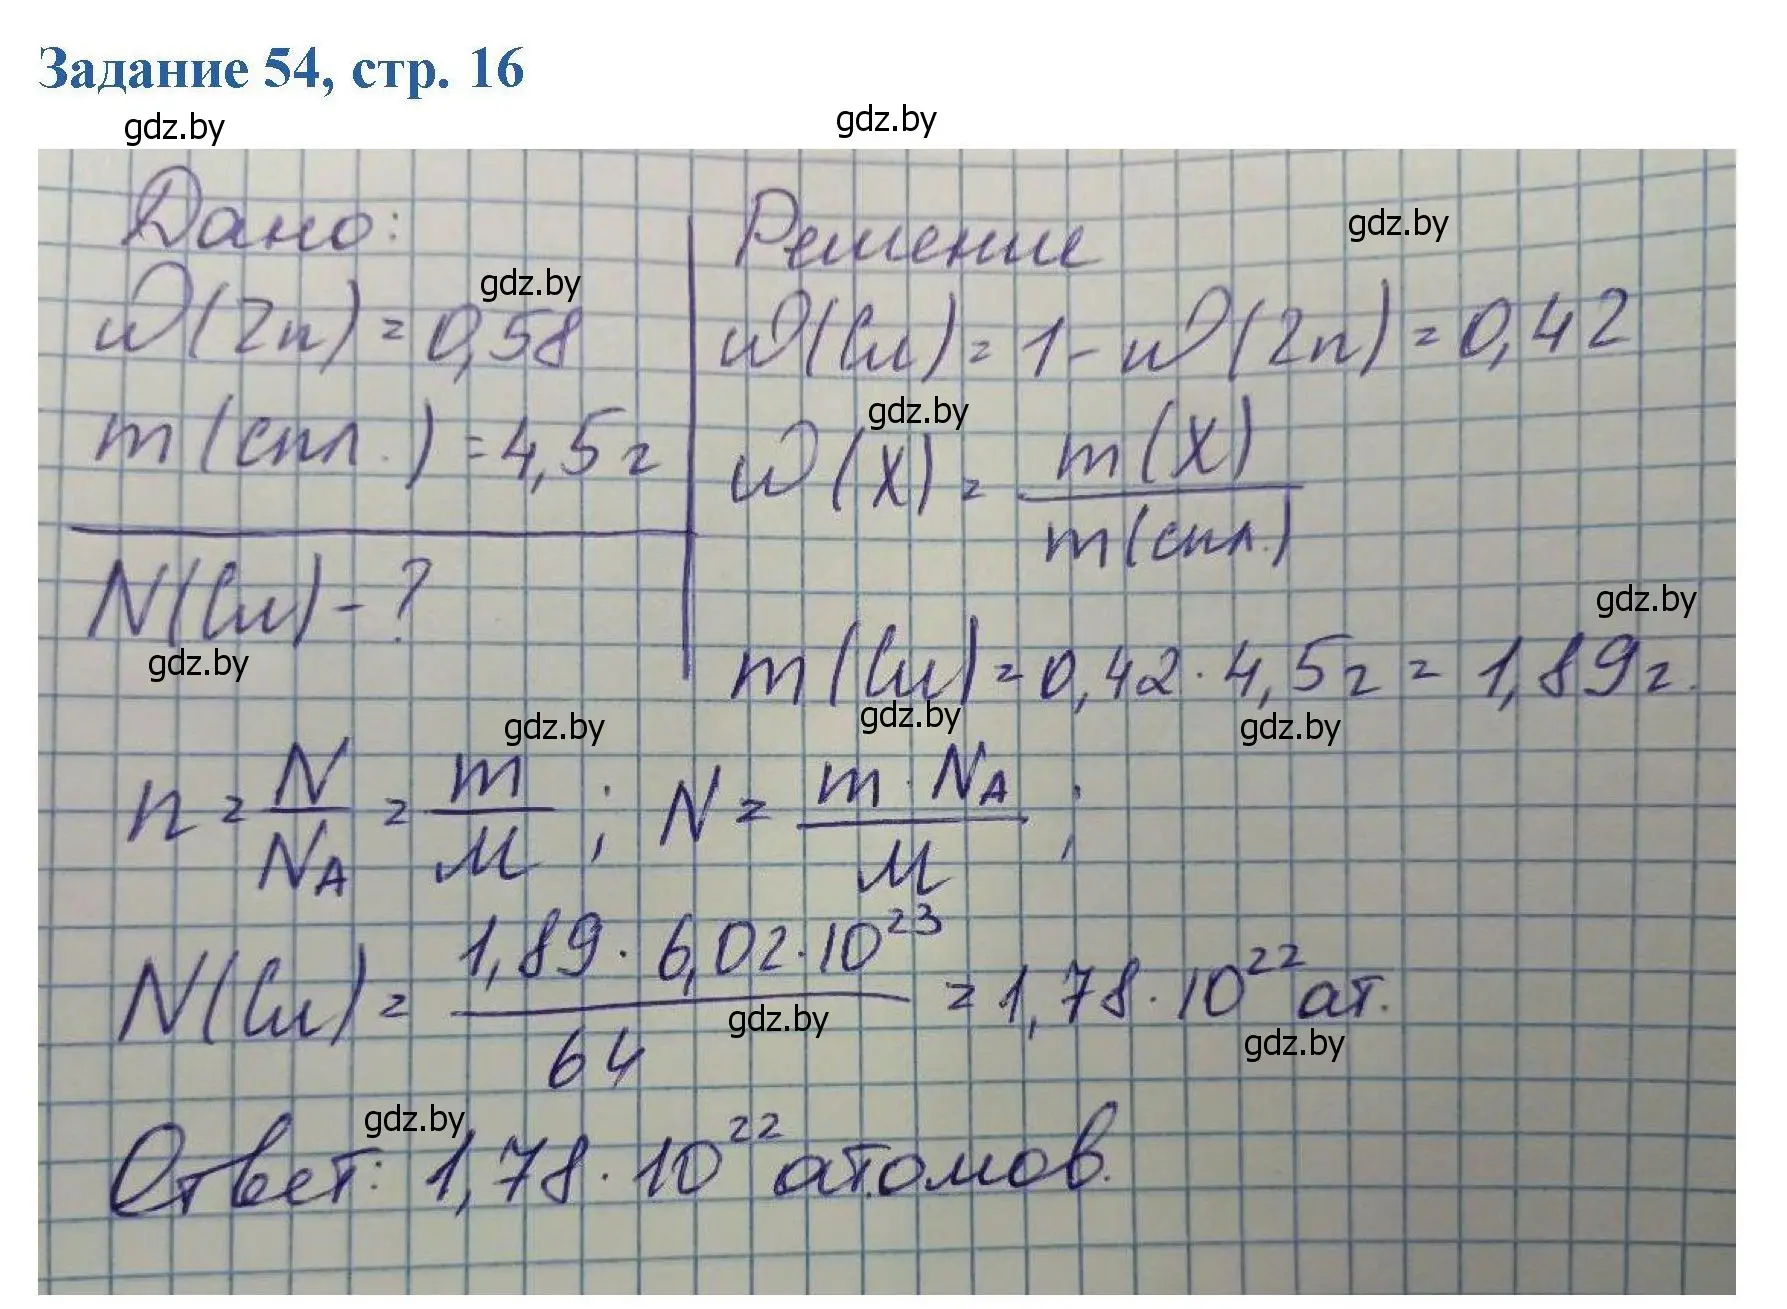 Задание 54, стр. 16
gdz.by
gdz.by
Дано:
Решение
gdz.by
gdz.by
w(Zn) = 0,58
w(Cu) = 1 - w(Zn) = 0,42
gdz.by
m(спл.) = 4,5 г
w(X) = m(X) / m(спл.)
N(Cu) - ?
gdz.by
gdz.by
m(Cu) = 0,42 · 4,5 г = 1,89 г.
gdz.by
gdz.by
gdz.by
n = N / N_A = m / M ; N = m · N_A / M ;
N(Cu) = 1,89 · 6,02 · 10^23 / 64 = 1,78 · 10^22 ат.
gdz.by
gdz.by
gdz.by
Ответ: 1,78 · 10^22 атомов.